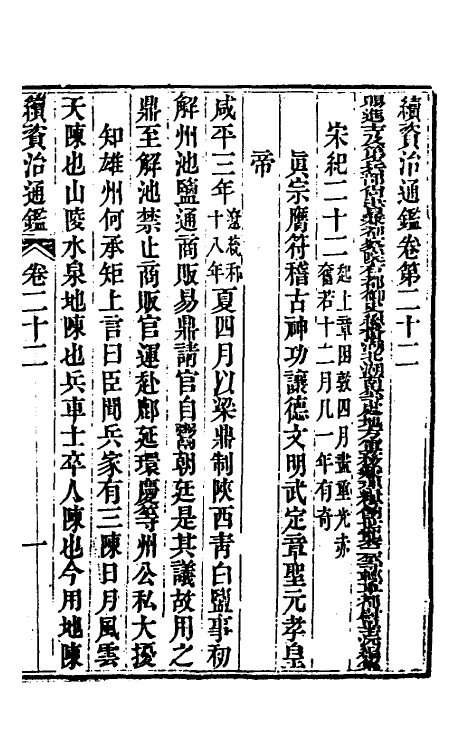 續資治通鑑卷第二十二
宋紀二十二起上章困敦四月盡重光赤奮若十二月凡一年有奇
眞宗膺符稽古神功讓德文明武定章聖元孝皇
帝
咸平三年遼統和十八年夏四月以梁鼎制陝西靑白鹽事初
解州池鹽通商販易鼎請官自鬻朝廷是其議故用之
鼎至解池禁止商販官運赴鄜延環慶等州公私大擾
知雄州何承矩上言曰臣聞兵家有三陳日月風雲
天陳也山陵水泉地陳也兵車士卒人陳也今用地陳
續資治通鑑 卷二十二 一